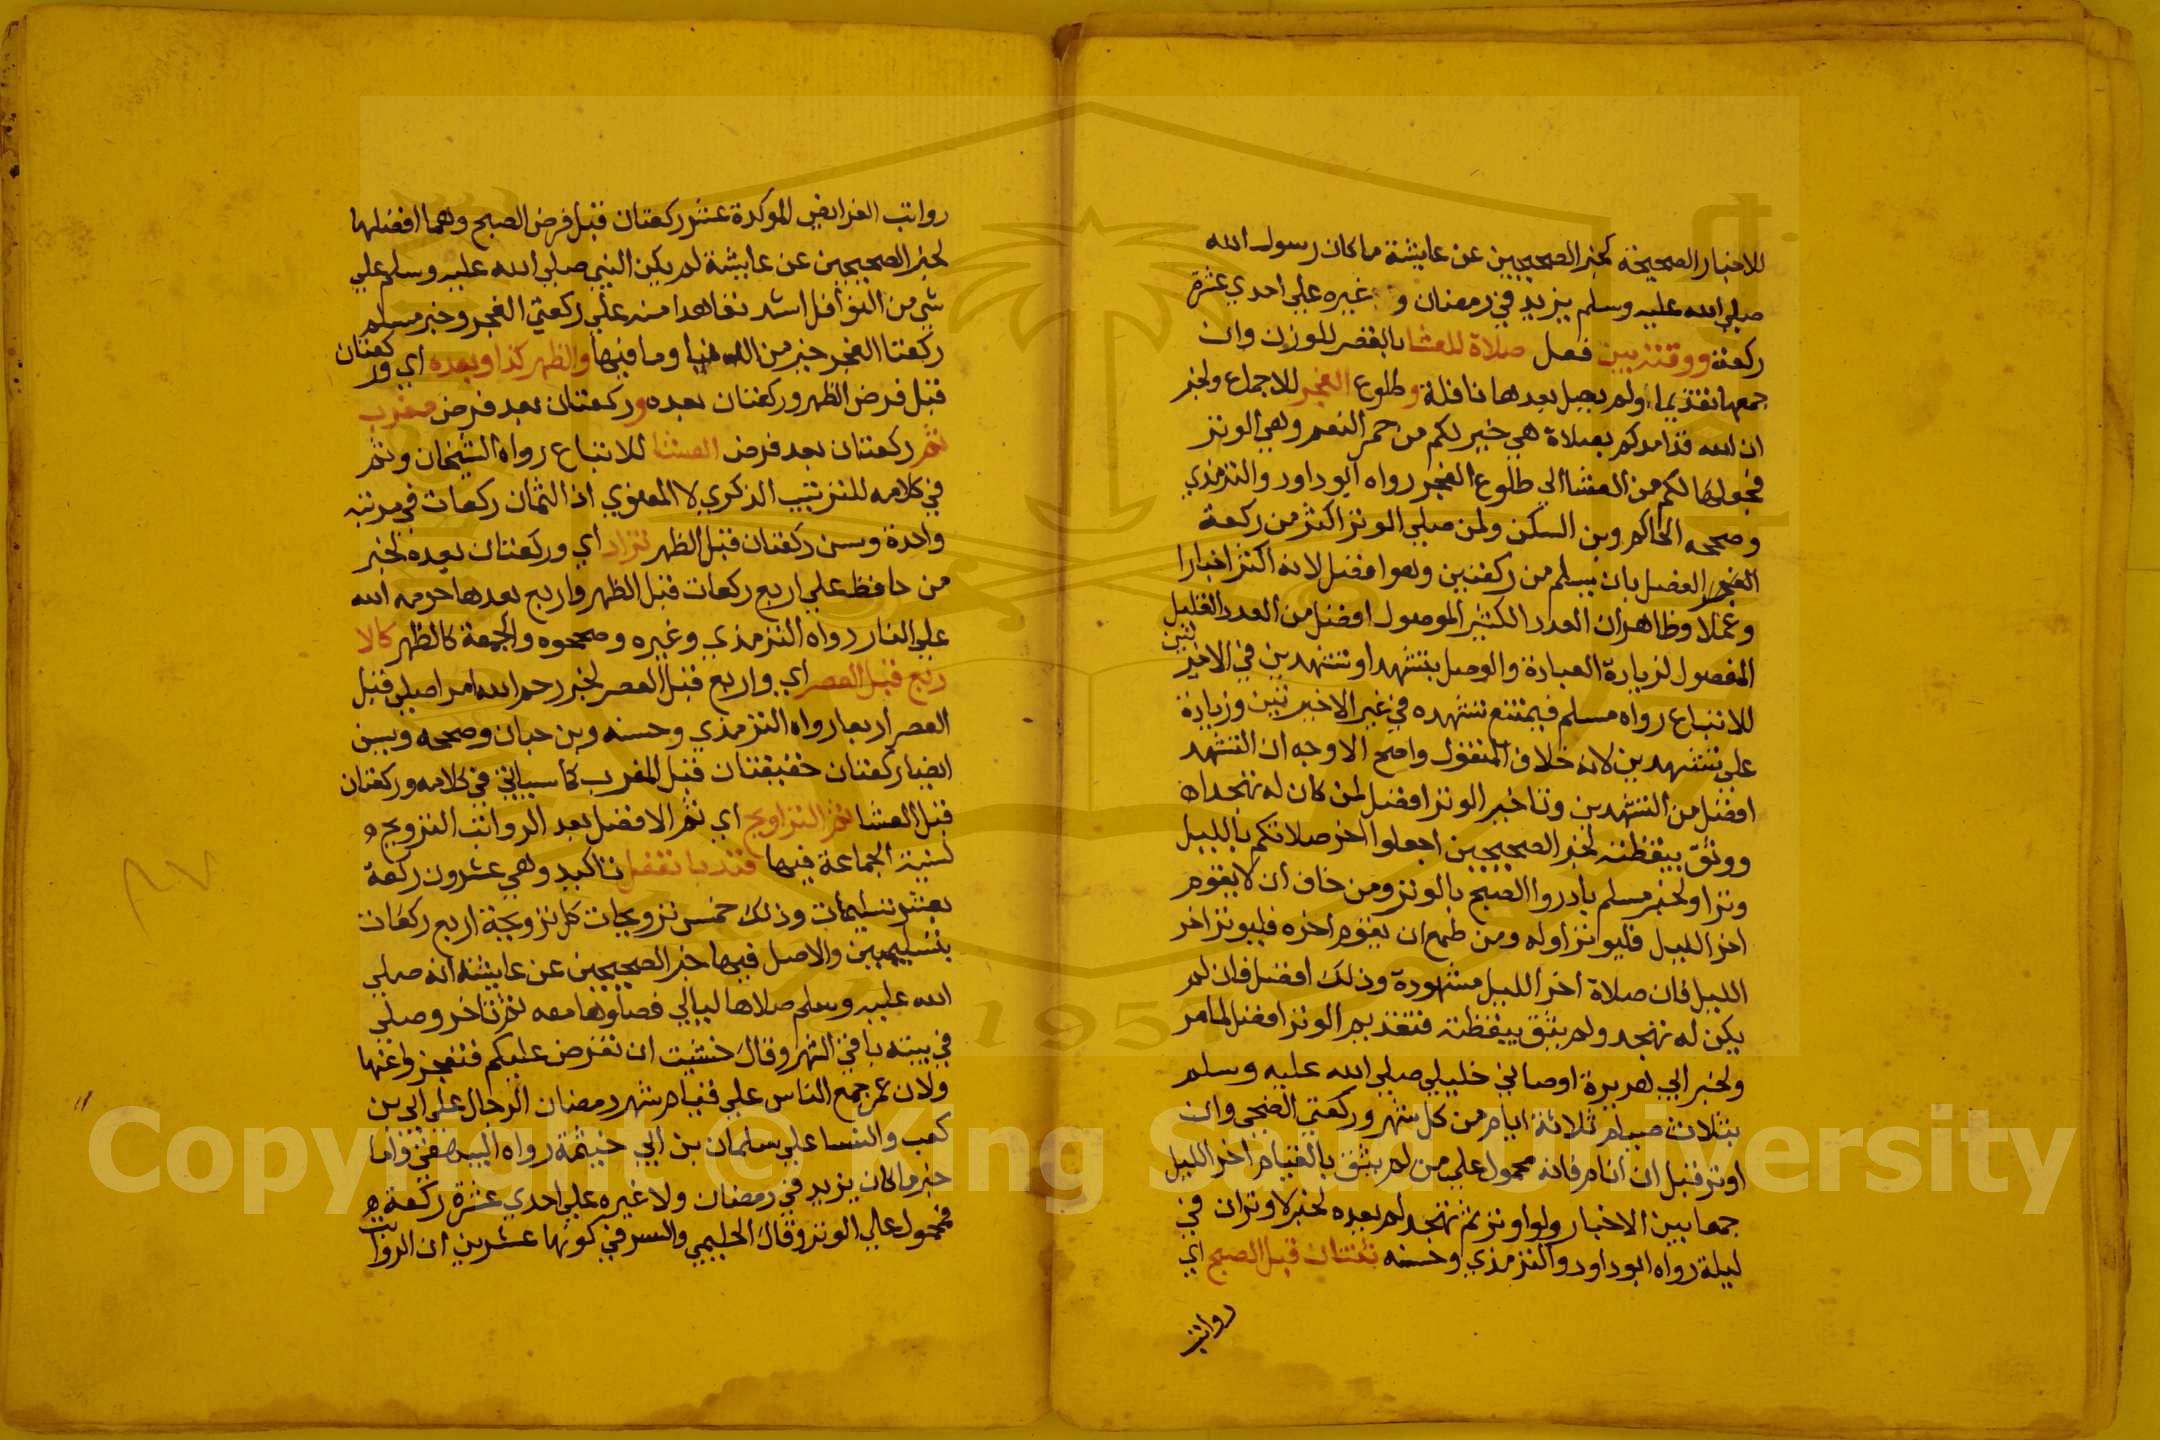 للاخبار الصحيحة كخبر الصحيحين عن عايشة ما كان رسول الله
صلي الله عليه وسلم يزيد في رمضان و غيره علي احدي عشرة
ركعة ووقته بين فعل صلاة للعشا بالقصر للوزن وان
جمعها تقديما ولم يصل بعدها نافلة وطلوع الفجر للاجماع ولخبر
ان الله قد امدكم بصلاة هي خير لكم من حمر النعم وهي الوتر
فجعلها لكم من العشا الي طلوع الفجر رواه ابو داود والترمذي
وصححه الحاكم وبن السكن ولمن صلي الوتر اكثر من ركعة
الفصل بان يسلم من ركعتين وهو افضل لانه اكثر اخبارا
وعملا وظاهر ان العدد الكثير الموصول افضل من العدد القليل
المفصول لزيادة العبادة والوصل بتشهد او تشهدين في الاخيرتين
للاتباع رواه مسلم فيمتنع تشهده في غير الاخيرتين وزيادة
علي تشهدين لانه خلاف المنقول واصح الاوجه ان التشهد
افضل من التشهدين وتاخير الوتر افضل لمن كان له تهجد او
ووثق بيقظته لخبر الصحيحين اجعلوا اخر صلاتكم بالليل
وترا ولخبر مسلم بادروا الصبح بالوتر ومن خاف ان لا يقوم
اخر الليل فليوتر اوله ومن طمع ان يقوم اخره فليوتر اخر
الليل فان صلاة اخر الليل مشهودة وذلك افضل فان لم
يكن له تهجد ولم يثق بيقظته فتقديم الوتر افضل لما مر
ولخبر ابي هريرة اوصاني خليلي صلي الله عليه وسلم
بثلاث صيام ثلاثة ايام من كل شهر وركعتي الضحي وان
اوتر قبل ان انام فانه محمول علي من لم يثق بالقيام اخر الليل
جمعا بين الاخبار ولو اوتر ثم تهجد لم يعده لخبر لا وتران في
ليلة رواه ابو داود والترمذي وحسنه ثنتان قبل الصبح اي
رواتب
رواتب الفرايض الموكدة عشر ركعتان قبل فرض الصبح وهما افضلها
لخبر الصحيحين عن عايشة لم يكن النبي صلي الله عليه وسلم علي
شي من النوافل اشد تعاهدا منه علي ركعتي الفجر وخبر مسلم
ركعتا الفجر خير من الدنيا وما فيها والظهر كذا وبعده اي وركعتان
قبل فرض الظهر وركعتان بعده وركعتان بعد فرض مغرب
ثم ركعتان بعد فرض العشا للاتباع رواه الشيخان وثم
في كلامه للترتيب الذكري لا المعنوي اذ الثمان ركعات في مرتبه
واحدة وسن ركعتان قبل الظهر تزاد اي وركعتان بعده لخبر
من حافظ علي اربع ركعات قبل الظهر واربع بعدها حرمه الله
علي النار رواه الترمذي وغيره وصححوه والجمعة كالظهر كالا
ربع قبل العصر اي واربع قبل العصر لخبر رحم الله امرا صلي قبل
العصر اربعا رواه الترمذي وحسنه وبن حبان وصححه ويسن
ايضا ركعتان خفيفتان قبل المغرب كما سياتي في كلامه وركعتان
قبل العشا ثم التراويح اي ثم الافضل بعد الرواتب التراويح
لسنية الجماعة فيها فندبا تفعل تاكيد وهي عشرون ركعة
بعشر تسليمات وذلك خمس ترويحات كل ترويحة اربع ركعات
بتسليمتين والاصل فيها خبر الصحيحين عن عايشة انه صلي
الله عليه وسلم صلاها ليالي فصلوها معه ثم تاخر وصلي
في بيته باقي الشهر وقال خشيت ان تفرض عليكم فتعجزوا عنها
ولان عمر جمع الناس علي قيام شهر رمضان الرجال علي ابي بن
كعب والنسا علي سلمان بن ابي حثمة رواه البيهقي واما
خبر ما كان يزيد في رمضان ولا غيره علي احدي عشرة ركعة
فمحمول علي الوتر وقال الحليمي والسر في كونها عشرين ان الرواتب
Copyright © King Saud University
1957